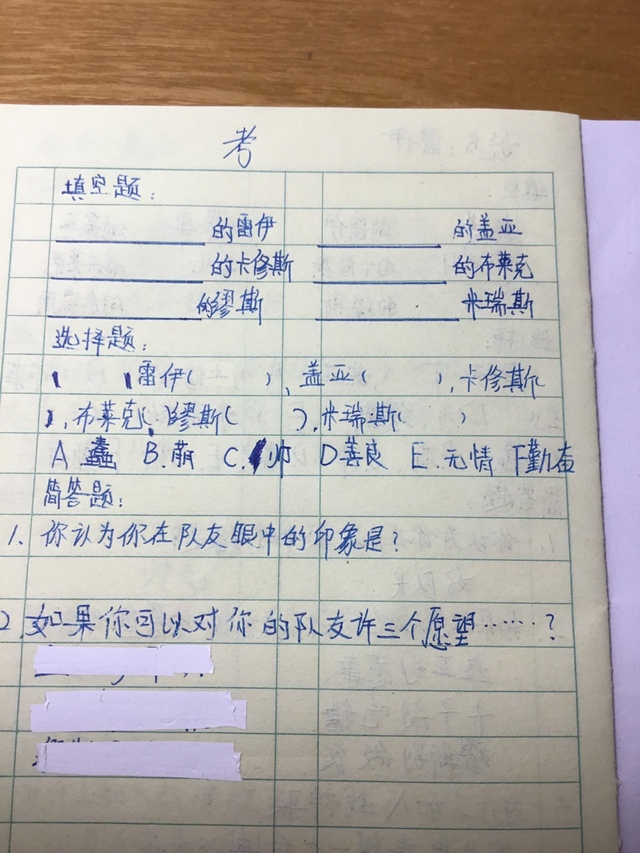 考
填空题:
______的雷伊 ______的盖亚
______的卡修斯 ______的布莱克
______的缪斯 ______米瑞斯
选择题:
雷伊( ),盖亚( ),卡修斯(
),布莱克( ),缪斯( ),米瑞斯( )
A 蠢 B.萌 C.帅 D善良 E.无情 F勤奋
简答题:
1.你认为你在队友眼中的印象是?
2.如果你可以对你的队友许三个愿望……?